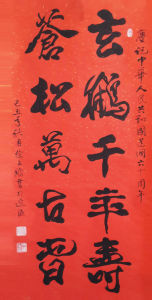 慶祝中華人民共和國建國六十周年
玄鶴千年壽
蒼松萬古旾
己丑